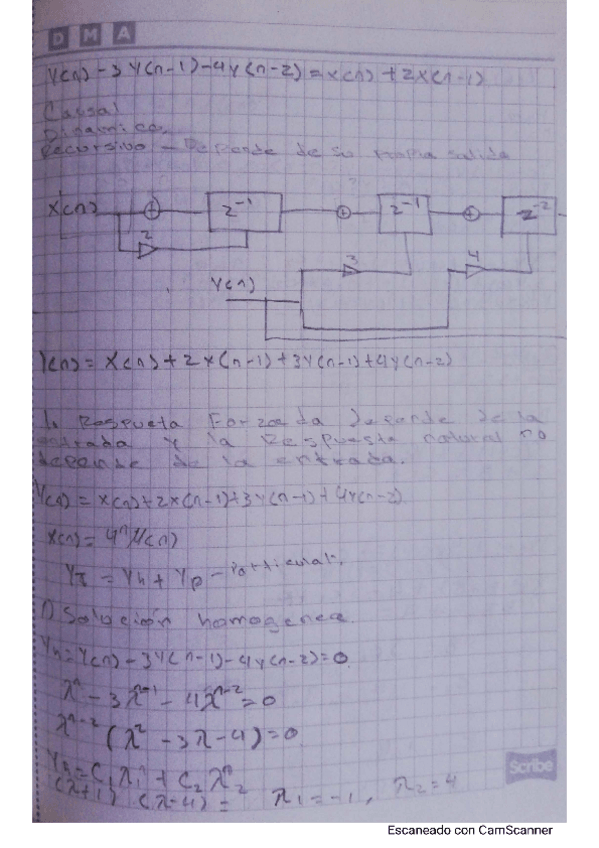 DMA
Y(n) - 3Y(n-1) - 4Y(n-2) = x(n) + 2x(n-1)
Causal
Dinamico
Recursivo - Depende de su propia salida
X(n) + z⁻¹ + z⁻¹ + z⁻²
2
3 4
Y(n)
Y(n) = x(n) + 2x(n-1) + 3Y(n-1) + 4y(n-2)
Respueta Forzada depende de la
entrada y la Respuesta natural no
depende de la entrada.
Y(n) = x(n) + 2x(n-1) + 3y(n-1) + 4y(n-2)
x(n) = 4ⁿμ(n)
Yh + Yp - Particular.
1) Solución homogenea.
Yh = Y(n) - 3Y(n-1) - 4y(n-2) = 0
λⁿ - 3λⁿ⁻¹ - 4λⁿ⁻² = 0
λⁿ⁻² (λ² - 3λ - 4) = 0
Yh = C₁λ₁ⁿ + C₂λ₂ⁿ
(λ+1) (λ-4) = λ₁ = -1, λ₂ = 4
Scribe
Escaneado con CamScanner